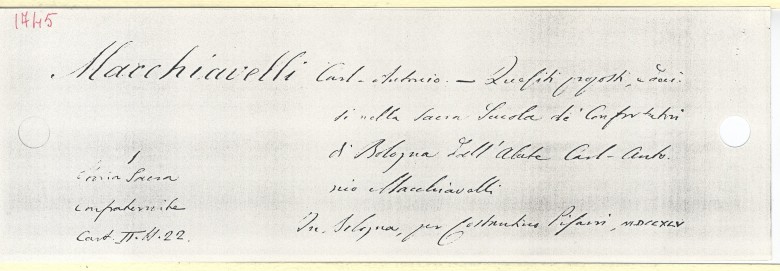 1745
Macchiavelli Carl-Antonio. — Quesiti proposti, e deci
si nella Sacra Scuola de' Confortatori
di Bologna dall'Abate Carl-Anto
nio Macchiavelli
In Bologna, per Costantino Pisarri, MDCCXLV
Sacra
Confraternite
Cart. II. H. 22.